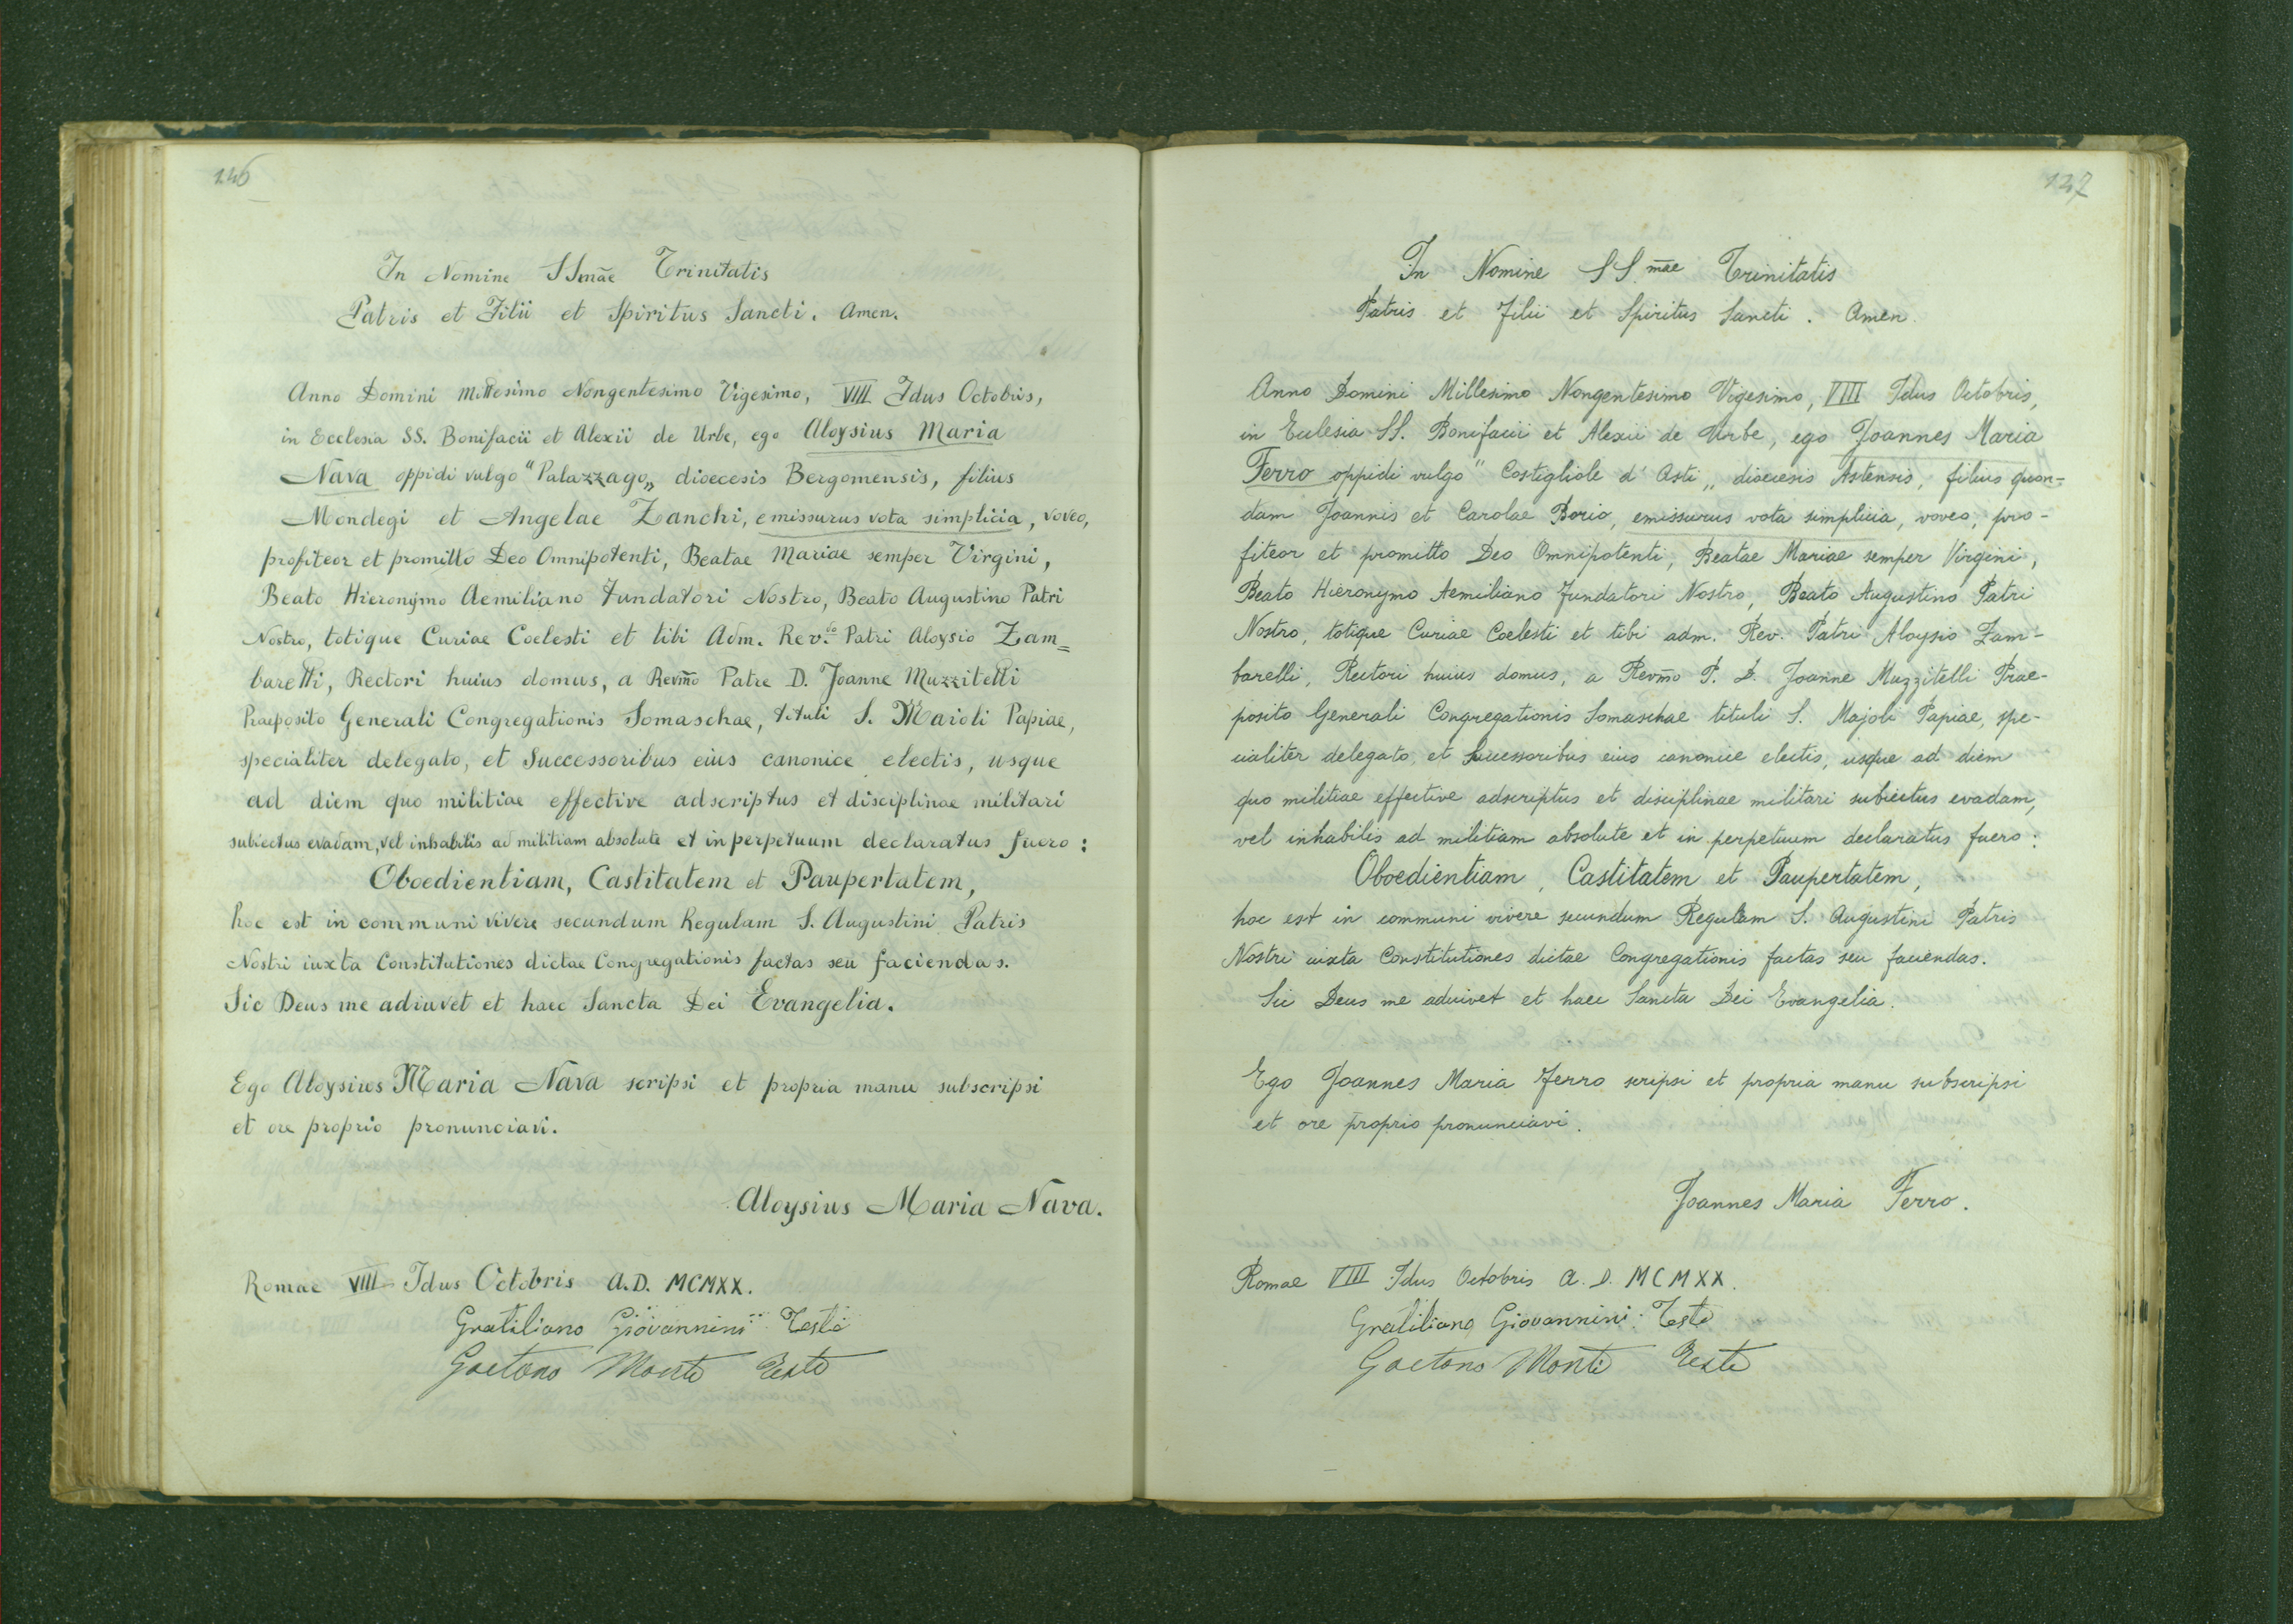 146
In Nomine SSmãe Trinitatis
Patris et Filii et Spiritus Sancti. Amen.
Anno Domini Millesimo Nongentesimo Vigesimo, VIII Idus Octobris,
in Ecclesia SS. Bonifacii et Alexii de Urbe, ego Aloysius Maria
Nava oppidi vulgo "Palazzago„ dioecesis Bergomensis, filius
Mondegi et Angelae Zanchi, emissurus vota simplicia, voveo,
profiteor et promitto Deo Omnipotenti, Beatae Mariae semper Virgini,
Beato Hieronymo Aemiliano Fundatori Nostro, Beato Augustino Patri
Nostro, totique Curiae Coelesti et tibi Adm. Rev.do Patri Aloysio Zam=
barelli, Rectori huius domus, a Revm̃o Patre D. Joanne Muzzitelli
Praeposito Generali Congregationis Somaschae, tituli S. Maioli Papiae,
specialiter delegato, et Successoribus eius canonice electis, usque
ad diem quo militiae effective adscriptus et disciplinae militari
subiectus evadam, vel inhabilis ad militiam absolute et in perpetuum declaratus fuero:
Oboedientiam, Castitatem et Paupertatem,
hoc est in communi vivere secundum Regulam S. Augustini Patris
Nostri iuxta Constitutiones dictae Congregationis factas seu faciendas.
Sic Deus me adiuvet et haec Sancta Dei Evangelia.
Ego Aloysius Maria Nava scripsi et propria manu subscripsi
et ore proprio pronunciavi.
Aloysius Maria Nava.
Romae VIII Idus Octobris A.D. MCMXX.
Gratiliano Giovannini: Teste
Gaetano Monti Teste
147
In Nomine SS.m̃ae Trinitatis
Patris et Filii et Spiritus Sancti. Amen.
Anno Domini Millesimo Nongentesimo Vigesimo, VIII Idus Octobris,
in Ecclesia SS. Bonifacii et Alexii de Urbe, ego Joannes Maria
Ferro oppidi vulgo "Costigliole d'Asti„ dioecesis Astensis, filius quon-
dam Joannis et Carolae Borio, emissurus vota simplicia, voveo, pro-
fiteor et promitto Deo Omnipotenti, Beatae Mariae semper Virgini,
Beato Hieronymo Aemiliano Fundatori Nostro, Beato Augustino Patri
Nostro, totique Curiae Coelesti et tibi adm. Rev. Patri Aloysio Zam-
barelli, Rectori huius domus, a Revm̃o P. D. Joanne Muzzitelli Prae-
posito Generali Congregationis Somaschae tituli S. Majoli Papiae, spe-
cialiter delegato, et Successoribus eius canonice electis, usque ad diem
quo militiae effective adscriptus et disciplinae militari subiectus evadam,
vel inhabilis ad militiam absolute et in perpetuum declaratus fuero:
Oboedientiam, Castitatem et Paupertatem,
hoc est in communi vivere secundum Regulam S. Augustini Patris
Nostri iuxta Constitutiones dictae Congregationis factas seu faciendas.
Sic Deus me adiuvet et haec Sancta Dei Evangelia.
Ego Joannes Maria Ferro scripsi et propria manu subscripsi
et ore proprio pronunciavi.
Joannes Maria Ferro.
Romae VIII Idus Octobris A. D. MCMXX.
Gratiliano Giovannini: Teste
Gaetano Monti Teste